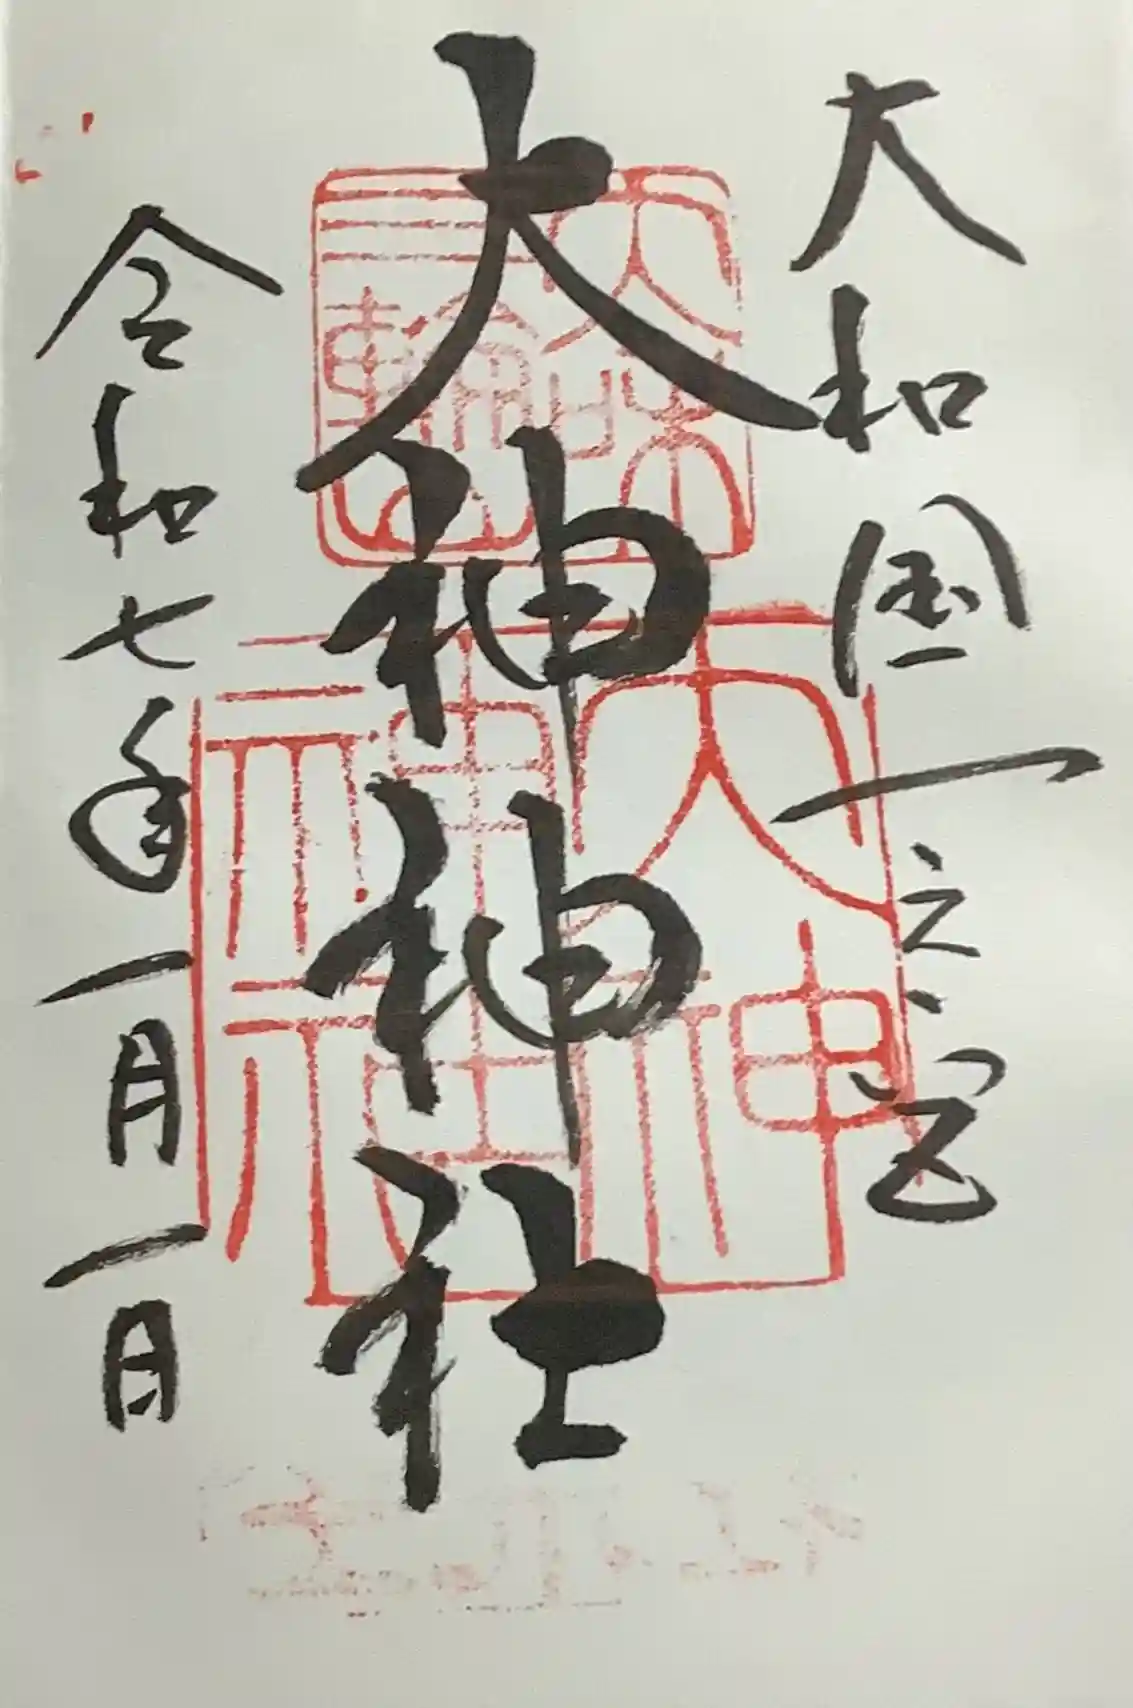 大和国一之宮
大神神社
令和七年一月一日
大神
神社